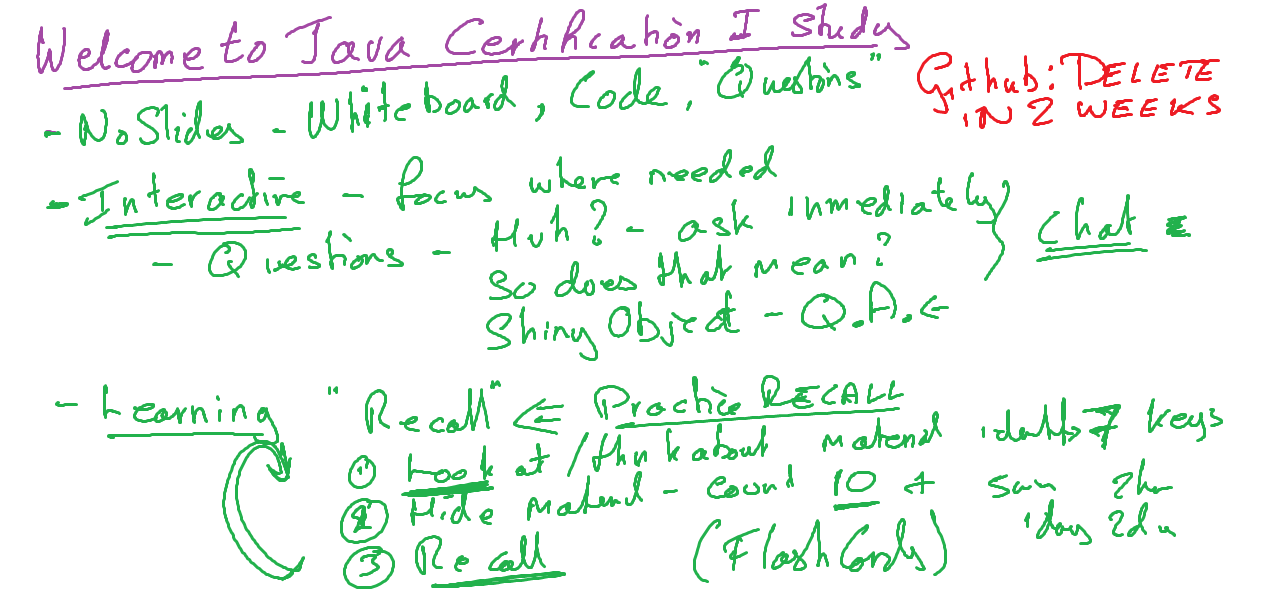 Welcome to Java Certification I study
Github: DELETE
IN 2 WEEKS
- No Slides - Whiteboard, Code, "Questions"
- Interactive - focus where needed
- Questions - Huh? - ask immediately
So does that mean?
Shiny Object - Q.A. ←
} Chat
- Learning "Recall" ⇐ Practice RECALL
① Look at / think about material identify 7 keys
② Hide Material - count 10 +
③ Recall (Flash Cards)
5min 2hr
1day